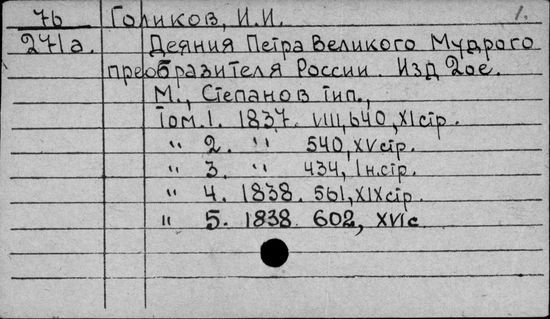 76 Голиков, И.И. 1.
271а. Деяния Петра Великого Мудрого
преобразителя России. Изд 2ое.
М., Степанов тип.,
Том.1. 1837. VIII, 640, XI стр.
" 2. " 540, XV стр.
" 3. " 434, 1 н.стр.
" 4. 1838. 561, XIX стр.
" 5. 1838 602, XVI с